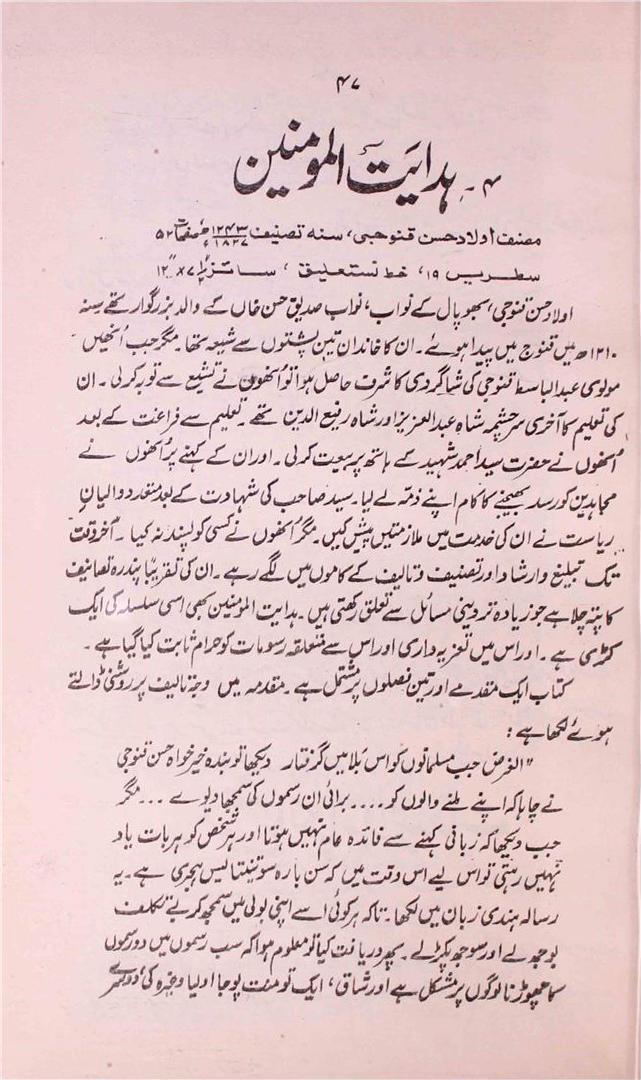 ۴۷
۴۔ ہدایت المومنین
مصنف اولاد حسن قنوجی، سنہ تصنیف ۱۲۴۳ھ / ۱۸۲۷ء صفحات ۵۲
سطریں ۱۹، خط نستعلیق، سائز
اولاد حسن قنوجی، بھوپال کے نواب، نواب صدیق حسن خاں کے والد بزرگوار تھے سنہ
۱۲۱۰ھ میں قنوج میں پیدا ہوئے۔ ان کا خاندان تین پشتوں سے شیعہ تھا۔ مگر جب اُنھیں
مولوی عبدالباسط قنوجی کی شاگردی کا شرف حاصل ہوا تو اُنھوں نے تشیع سے توبہ کرلی۔ ان
کی تعلیم کا آخری سرچشمہ شاہ عبدالعزیز اور شاہ رفیع الدین تھے۔ تعلیم سے فراغت کے بعد
اُنھوں نے حضرت سید احمد شہید کے ہاتھ پر بیعت کرلی۔ اور ان کے کہنے پر اُنھوں نے
مجاہدین کو رسد بھیجنے کا کام اپنے ذمہ لے لیا۔ سید صاحب کی شہادت کے بعد متعدد والیانِ
ریاست نے ان کی خدمت میں ملازمتیں پیش کیں۔ مگر اُنھوں نے کسی کو پسند نہ کیا۔ آخر وقت
تک تبلیغ و ارشاد اور تصنیف و تالیف کے کاموں میں لگے رہے۔ ان کی تقریباً پندرہ تصانیف
کا پتہ چلا ہے جو زیادہ تر دینی مسائل سے تعلق رکھتی ہیں۔ ہدایت المومنین بھی اسی سلسلہ کی ایک
کڑی ہے۔ اور اس میں تعزیہ داری اور اس سے متعلقہ رسومات کو حرام ثابت کیا گیا ہے۔
کتاب ایک مقدمے اور تین فصلوں پر مشتمل ہے۔ مقدمہ میں وجہ تالیف پر روشنی ڈالتے
ہوئے لکھا ہے:
"الغرض جب مسلمانوں کو اس بلا میں گرفتار دیکھا تو بندہ خیر خواہ حسن قنوجی
نے چاہا کہ اپنے ملنے والوں کو .... برائی ان رسموں کی سمجھا دیوے ... مگر
جب دیکھا کہ زبانی کہنے سے فائدہ عام نہیں ہوتا اور ہر شخص کو ہر بات یاد
نہیں رہتی تو اس لیے اس وقت میں کہ سن بارہ سو تینتالیس ہجری ہے۔ یہ
رسالہ ہندی زبان میں لکھا۔ تاکہ ہر کوئی اسے اپنی بولی میں سمجھ کر بے تکلف
بوجھ لے اور سوجھ پکڑلے۔ پھر دریافت کیا تو معلوم ہوا کہ سب رسموں میں دو رسموں
کا چھوڑنا لوگوں پر مشکل ہے اور شاق، ایک تو منت پوجا اولیا وغیرہ کی، دوسرے